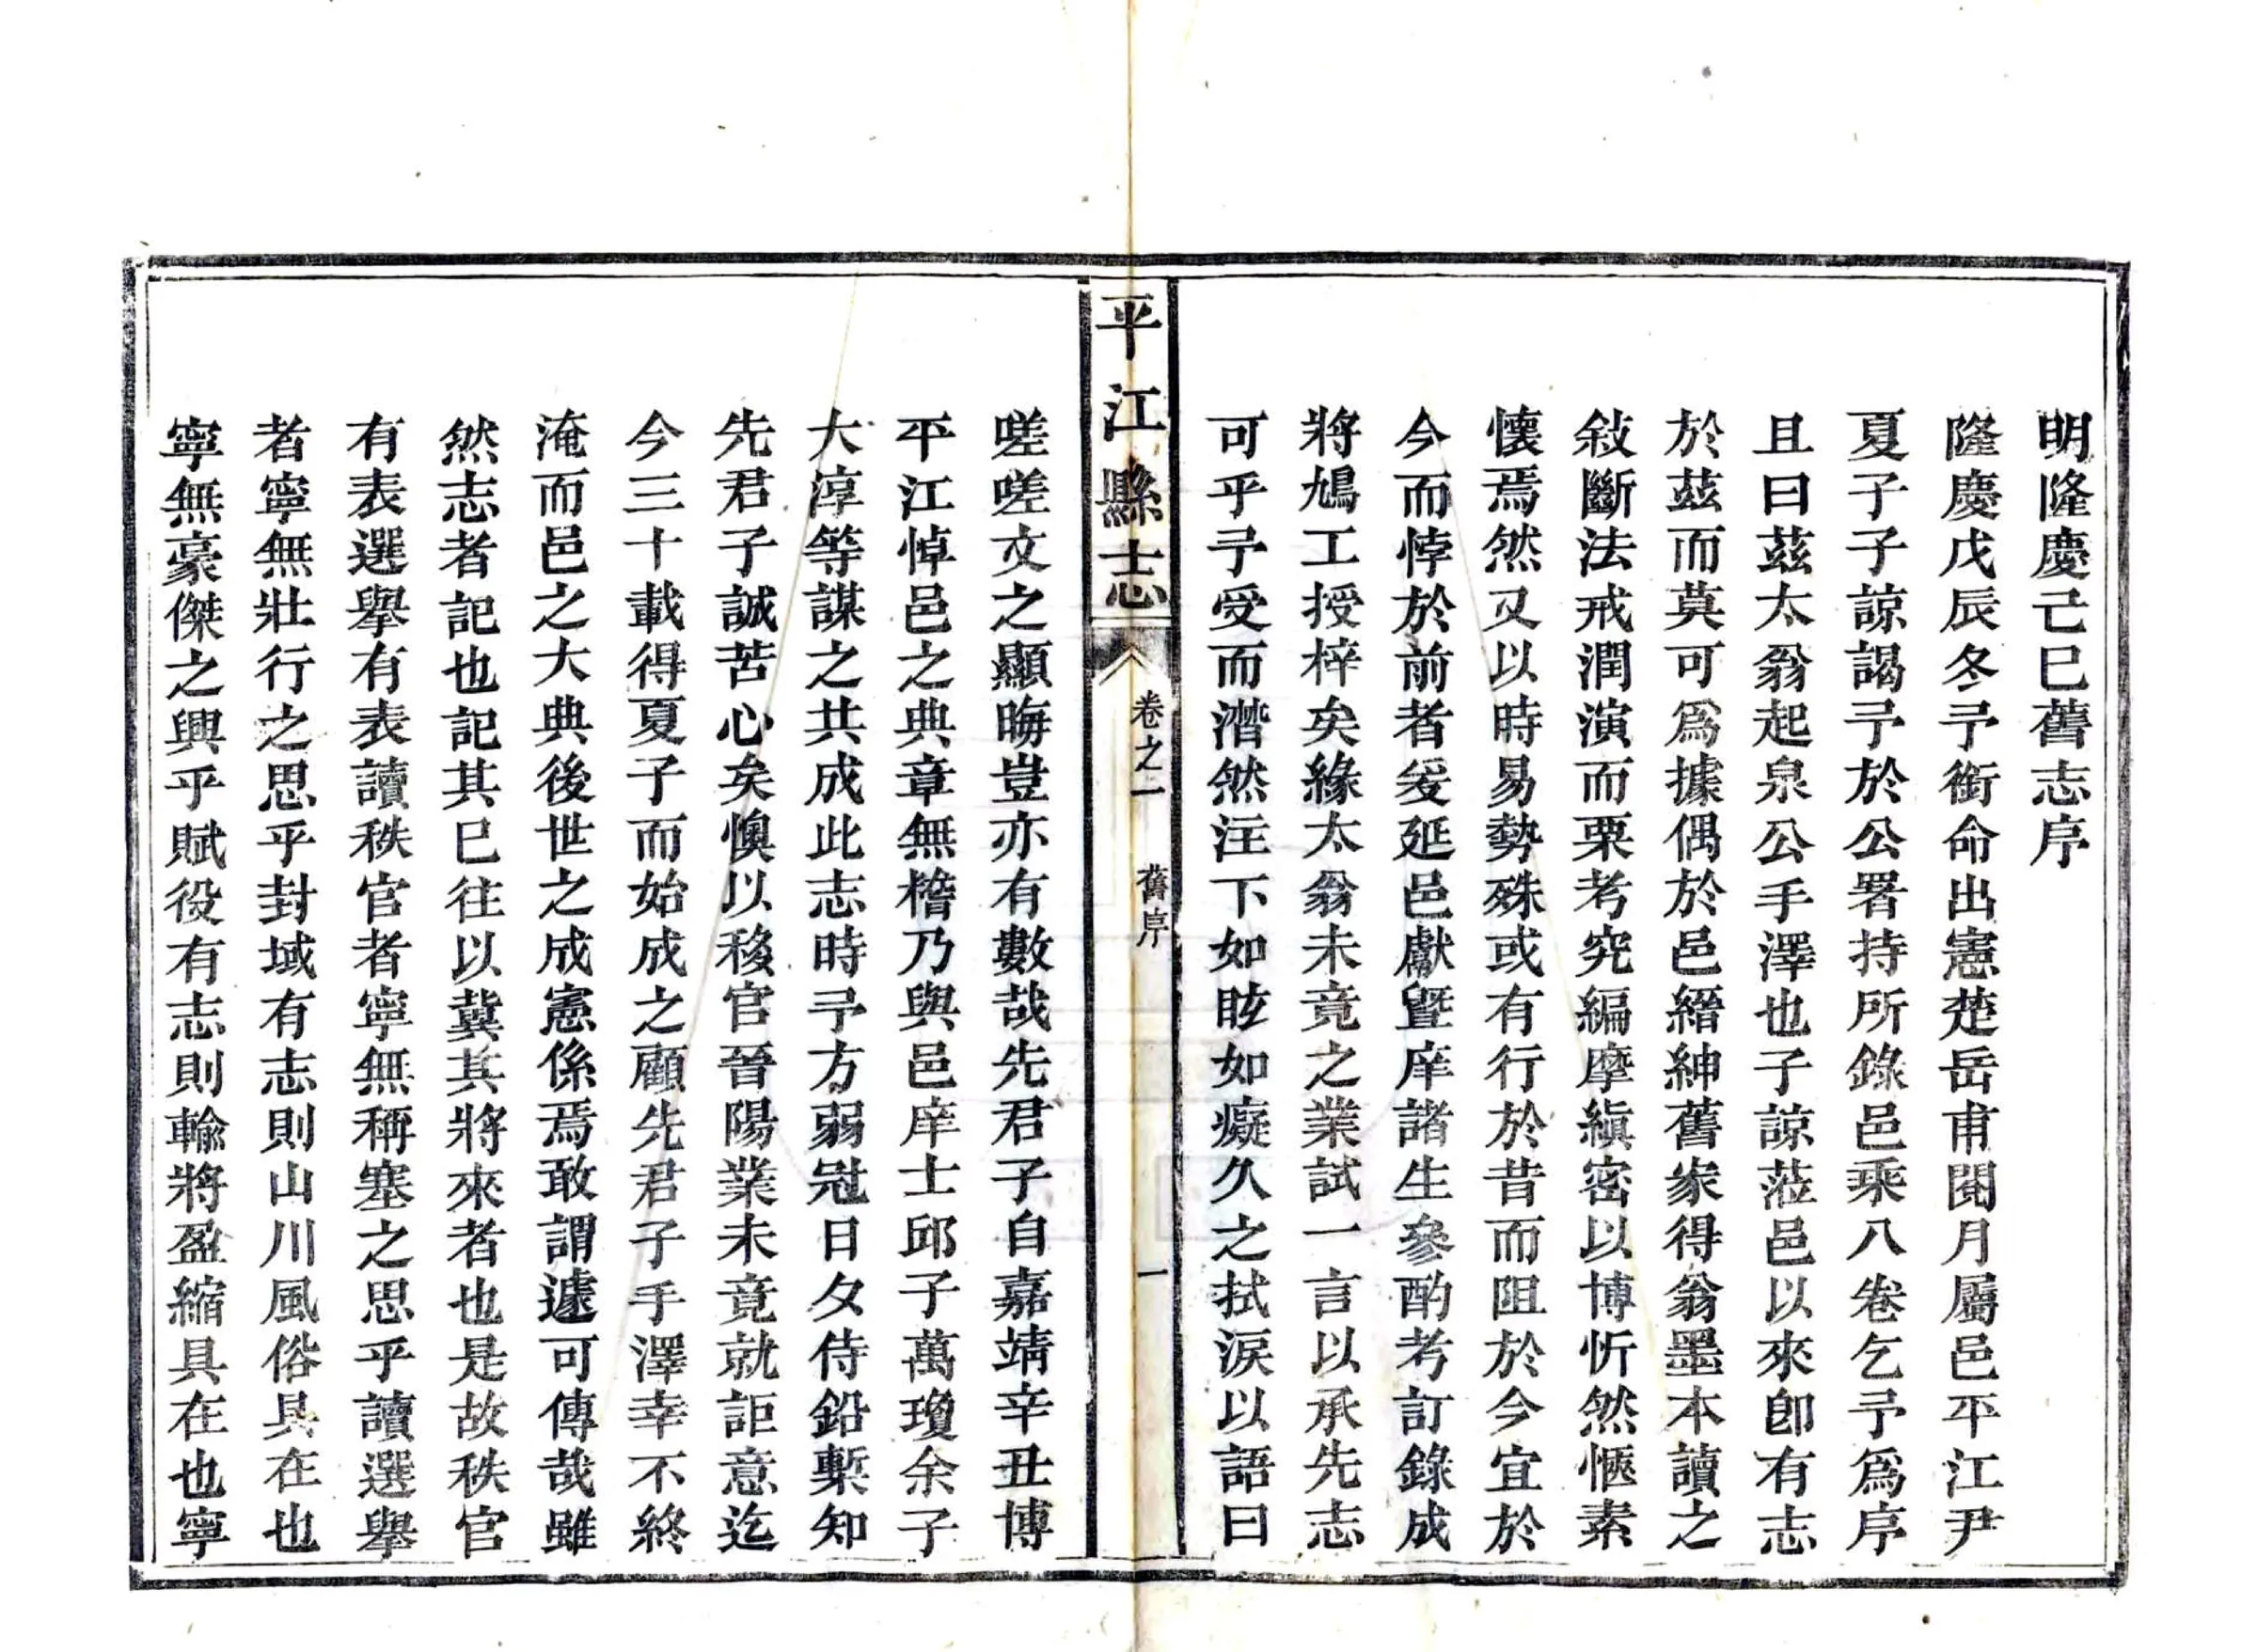 明隆慶己巳舊志序
隆慶戊辰冬予銜命出憲楚岳甫閱月屬邑平江尹
夏子子諒謁予於公署持所錄邑乘八卷乞予爲序
且曰茲太翁起泉公手澤也子諒蒞邑以來卽有志
於茲而莫可爲據偶於邑縉紳舊家得翁墨本讀之
敍斷法戒潤演而栗考究編摩縝密以博忻然愜素
懷焉然又以時易勢殊或有行於昔而阻於今宜於
今而悖於前者爰延邑獻曁庠諸生參酌考訂錄成
將鳩工授梓矣緣太翁未竟之業試一言以承先志
可乎予受而潸然泣下如眩如癡久之拭淚以語曰
平江縣志
卷之一
舊序
一
嗟嗟文之顯晦豈亦有數哉先君子自嘉靖辛丑博
平江悼邑之典章無稽乃與邑庠士邱子萬瓊余子
大淳等謀之共成此志時予方弱冠日夕侍鉛槧知
先君子誠苦心矣懊以移官晉陽業未竟就詎意迄
今三十載得夏子而始成之顧先君子手澤幸不終
淹而邑之大典後世之成憲係焉敢謂遽可傳哉雖
然志者記也記其已往以冀其將來者也是故秩官
有表選舉有表讀秩官者寧無稱塞之思乎讀選舉
者寧無壯行之思乎封域有志則山川風俗具在也
寧無豪傑之興乎賦役有志則輸將盈縮具在也寧